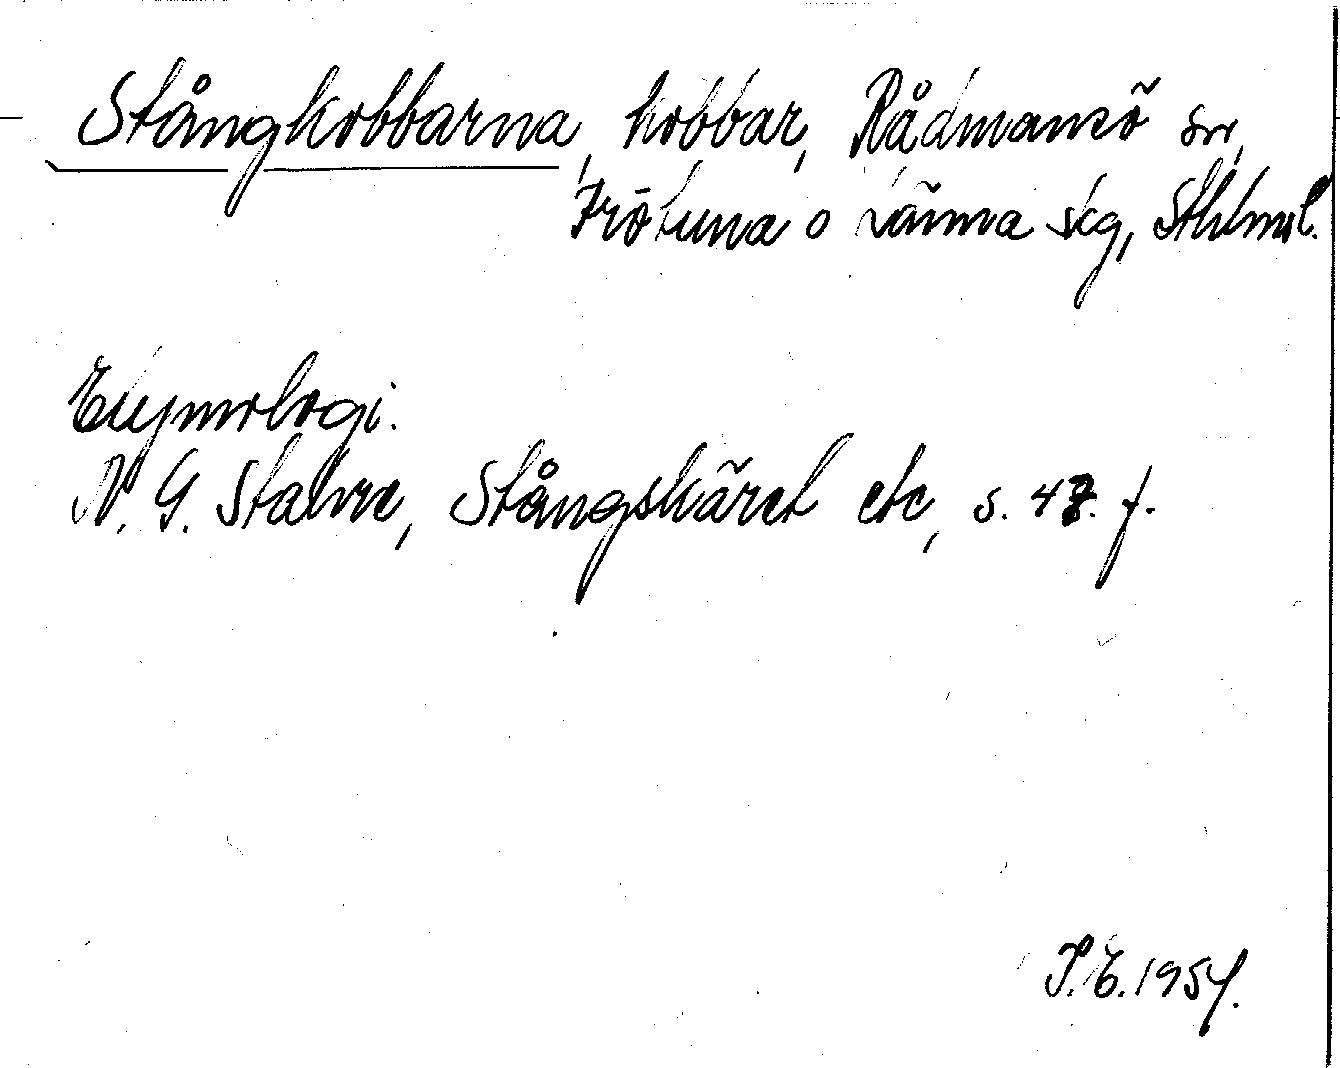 Stångkobbarna, kobbar, Rådmansö sn,
Frötuna o Länna skg, Sthlms l.
Etymologi.
N. G. Stahre, Stångskäret etc, s. 47. f.
P. E. 1954.